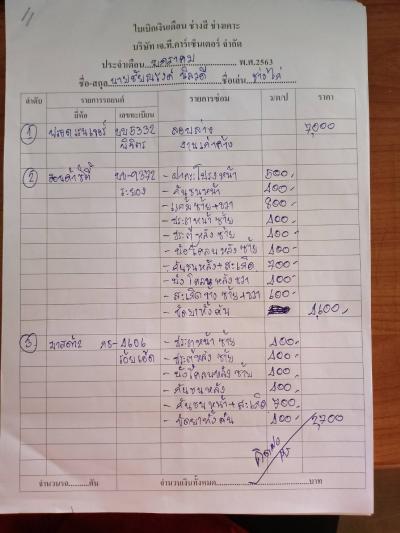 ใบเบิกเงินเดือน ช่างสี ช่างเคาะ
บริษัท เจ.ที.คาร์เซ็นเตอร์ จำกัด
ประจำเดือน มกราคม พ.ศ.2563
ชื่อ-สกุล ชื่อเล่น ช่างไก่
ลำดับ รายการรถยนต์ รายการซ่อม ว/ด/ป ราคา
ยี่ห้อ เลขทะเบียน
1 5332 7,000
พิจิตร
2 ฮอนด้าซิตี้ 9372 - ฝากระโปรงหน้า 500.-
ระยอง - กันชนหน้า 400.-
- แก้มซ้าย+ขวา 800.-
- ประตูหน้าซ้าย 400.-
- ประตูหลังซ้าย 400.-
- บังโคลนหลังซ้าย 400.-
- กันชนหลัง+สเกิ๊ต 700.-
- บังโคลนหลังขวา 400.-
- สเกิ๊ตข้างซ้าย+ขวา 600.-
- ขัดยาทั้งคัน 4,600.-
3 มาสด้า2 4606 - ประตูหน้าซ้าย 400.-
ร้อยเอ็ด - ประตูหลังซ้าย 400.-
- บังโคลนหลังซ้าย 400.-
- กันชนหลัง 400.-
- กันชนหน้า+สเกิ๊ต 700.-
- ขัดยาทั้งคัน 400.- 2,700
จำนวนรถ..........คัน จำนวนเงินทั้งหมด..........บาท